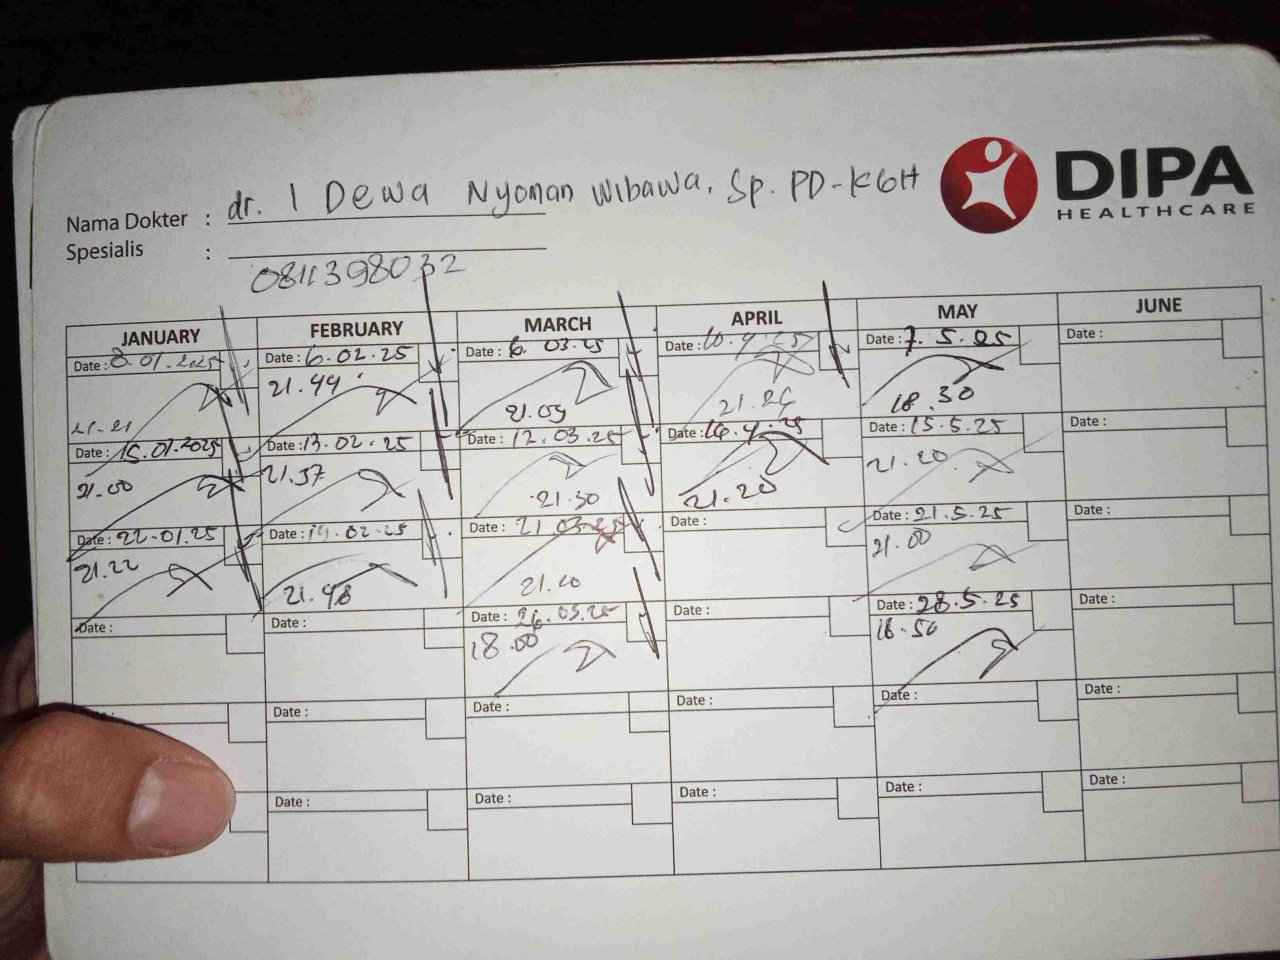 DIPA
HEALTHCARE
Nama Dokter : dr. I Dewa Nyoman Wibawa, Sp. PD-KGH
Spesialis :
0811398032
JANUARY FEBRUARY MARCH APRIL MAY JUNE
Date : 8.01.2025 Date : 6.02.25 Date : 6.03.25 Date : 10.4.25 Date : 7.5.25 Date :
21.21 21.44 21.09 21.24 18.30
Date : 15.01.2025 Date : 13.02.25 Date : 12.03.25 Date : 16.4.25 Date : 15.5.25 Date :
21.00 21.37 21.30 21.20 21.20
Date : 22.01.25 Date : 19.02.25 Date : 21.03.25 Date : Date : 21.5.25 Date :
21.22 21.48 21.20 21.00
Date : Date : Date : 26.03.25 Date : Date : 28.5.25 Date :
18.00 18.50
Date : Date : Date : Date : Date :
Date : Date : Date : Date : Date :